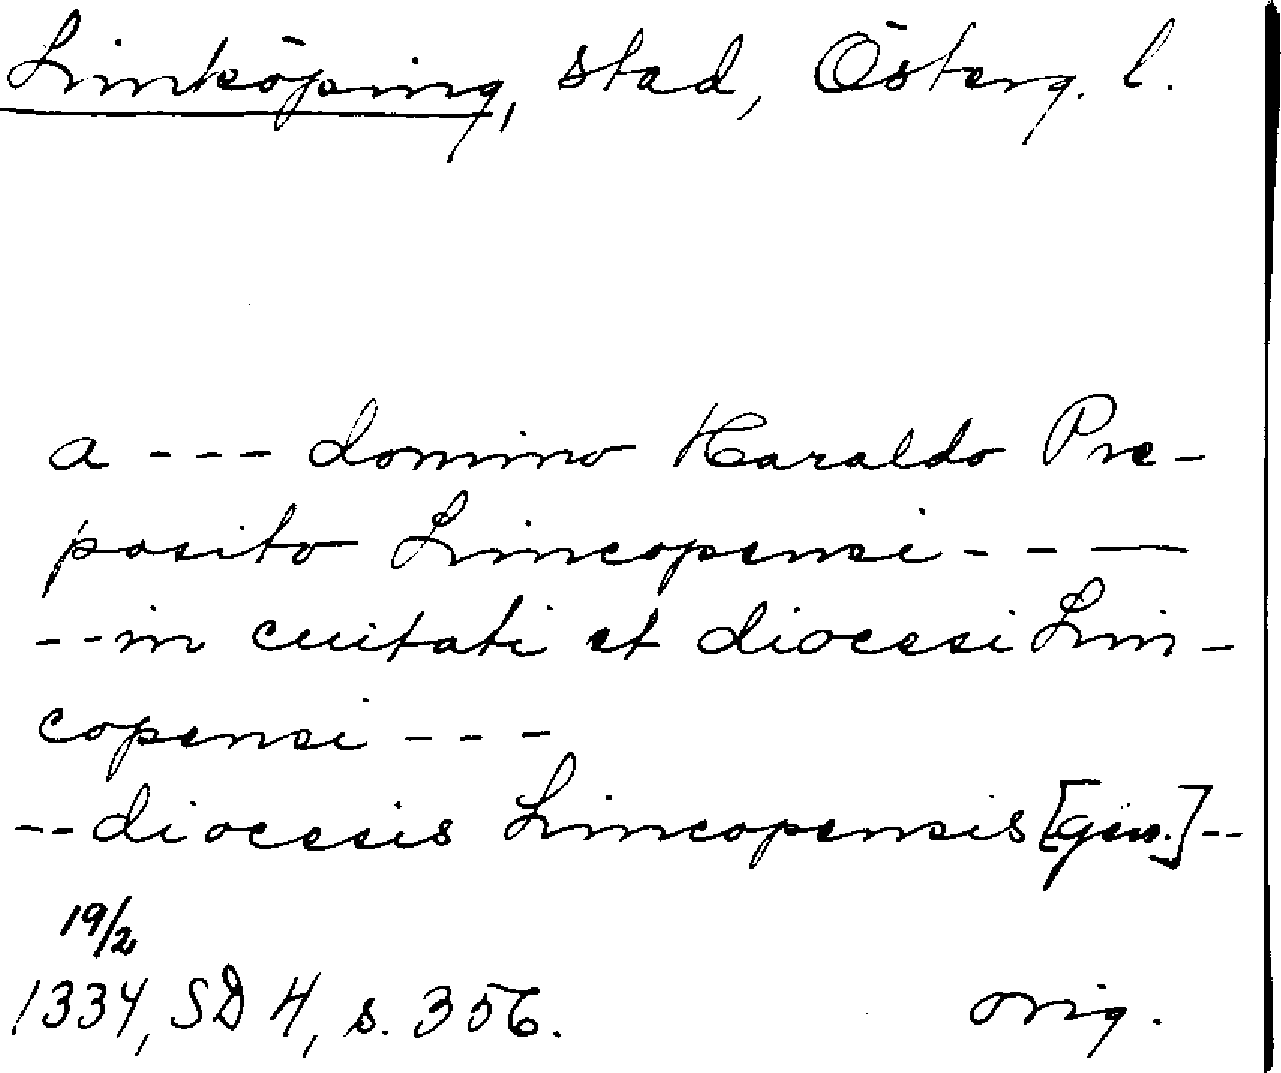 Linköping, stad, Österg. l.
a --- domino Haraldo Pre-
posito Lincopensi ---
-- in ciuitati et diocesi Lin-
copensi ---
-- diocesis Lincopensis [gen.] --
19/2
1334, SD 4, s. 356. orig.